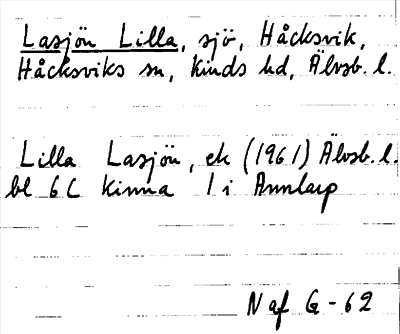 Lasjön Lilla, sjö, Håcksvik,
Håcksviks sn, Kinds hd, Älvsb. l.
Lilla Lasjön, ek (1961) Älvsb. l.
bl 6C Kinna 1 i Annlarp
Naf G-62